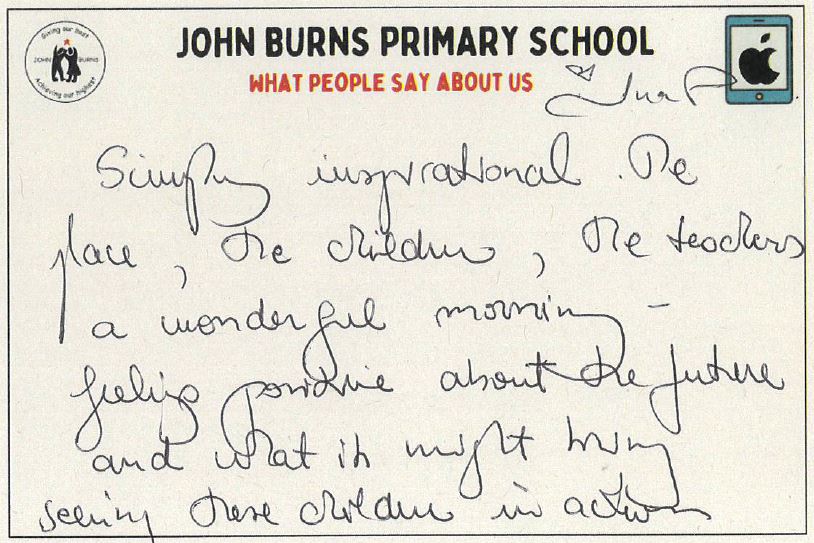 Giving our best
JOHN BURNS
Achieving our highest
JOHN BURNS PRIMARY SCHOOL
WHAT PEOPLE SAY ABOUT US
Simply inspirational. The
place, the children, the teachers
a wonderful morning -
feeling positive about the future
and what it might bring
seeing these children in action